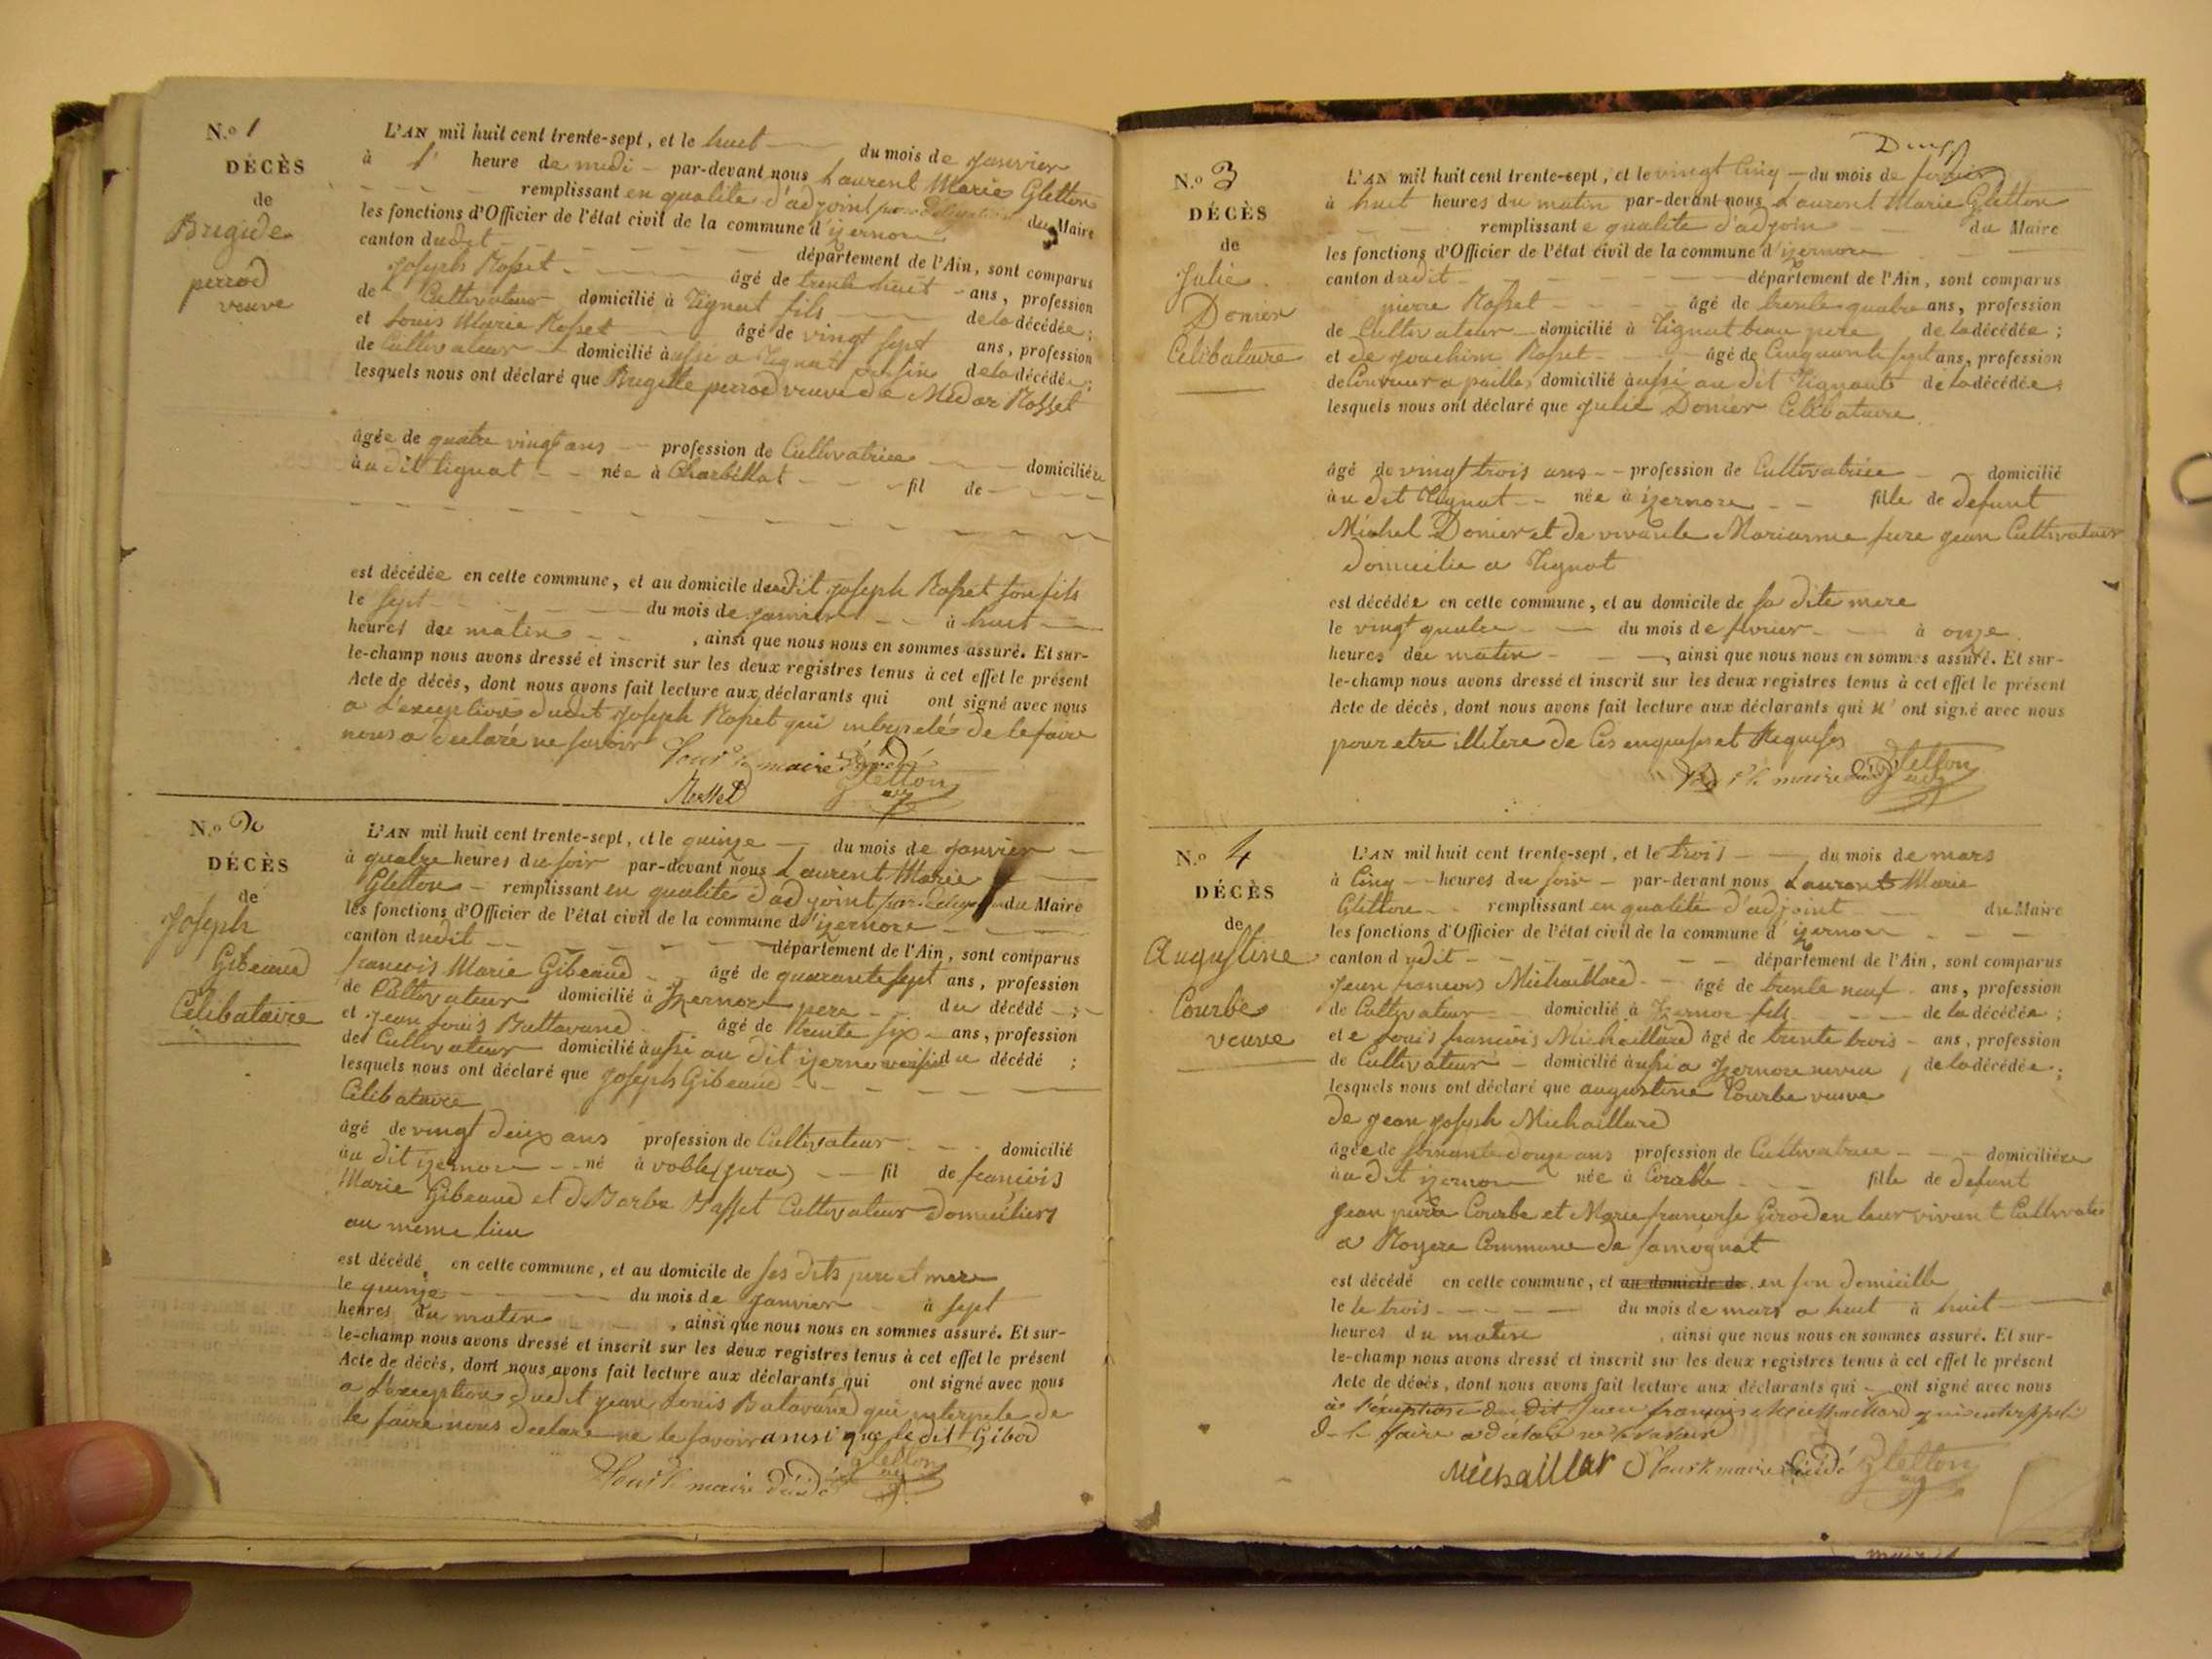 N.o 1
DÉCÈS
de
Brigide
perrod
veuve
L'AN mil huit cent trente-sept, et le huit du mois de janvier
à 1 heure de midi par-devant nous Laurent Marie Gletton
remplissant en qualité d'adjoint par délégation du Maire
les fonctions d'Officier de l'état civil de la commune d'izernore
canton dudit département de l'Ain, sont comparus
Joseph Rosset âgé de trente huit ans, profession
de Cultivateur domicilié à Tignat fils de la décédée;
et Louis Marie Rosset âgé de vingt sept ans, profession
de Cultivateur domicilié à aussi a Tignat de la décédée;
lesquels nous ont déclaré que Brigitte perrod veuve de Medar Rosset
âgée de quatre vingt ans profession de Cultivatrice domiciliée
à au dit tignat née à Charbillat fil de
est décédée en cette commune, et au domicile dudit joseph Rosset son fils
le sept du mois de janvier à huit
heures du matin, ainsi que nous nous en sommes assuré. Et sur-
le-champ nous avons dressé et inscrit sur les deux registres tenus à cet effet le présent
Acte de décès, dont nous avons fait lecture aux déclarants qui ont signé avec nous
a l'exception dudit joseph Rosset qui interpelé de le faire
nous a declaré ne savoir
Pour le maire
Rosset Gletton
N.o 2
DÉCÈS
de
Joseph
Gibeaud
Célibataire
L'AN mil huit cent trente-sept, et le quinze du mois de janvier
à quatre heures du soir par-devant nous Laurent Marie
Gletton remplissant en qualité d'adjoint par délégation du Maire
les fonctions d'Officier de l'état civil de la commune d'izernore
canton dudit département de l'Ain, sont comparus
francois Marie Gibeaud âgé de quarante sept ans, profession
de Cultivateur domicilié à Izernore pere du décédé;
et jean louis Buttavand âgé de trente six ans, profession
de Cultivateur domicilié à aussi au dit izernore voisin du décédé;
lesquels nous ont déclaré que joseph Gibeaud
Célibataire
âgé de vingt deux ans profession de Cultivateur domicilié
à au dit izernore né à voble (jura) fil de francois
Marie Gibeaud et de Barbe Basset Cultivateur domiciliers
au meme lieu
est décédé en cette commune, et au domicile de ses dits pere et mere
le quinze du mois de janvier à sept
heures du matin, ainsi que nous nous en sommes assuré. Et sur-
le-champ nous avons dressé et inscrit sur les deux registres tenus à cet effet le présent
Acte de décès, dont nous avons fait lecture aux déclarants qui ont signé avec nous
a l'exception dudit jean Louis Butavand qui interpele de
le faire nous declare ne le savoir ainsi que le dit Gibod
Pour le maire Gletton
N.o 3
DÉCÈS
de
Julie
Donier
Célibataire
L'AN mil huit cent trente-sept, et le vingt cinq du mois de fevrier
à huit heures du matin par-devant nous Laurent Marie Gletton
remplissant e qualite d'adjoin du Maire
les fonctions d'Officier de l'état civil de la commune d'izernore
canton dudit département de l'Ain, sont comparus
pierre Rosset âgé de trente quatre ans, profession
de Cultivateur domicilié à Tignat beau pere de la décédée;
et de joachim Rosset âgé de Cinquante sept ans, profession
de Couvreur a paille domicilié à aussi au dit Tignat de la décédée;
lesquels nous ont déclaré que julie Donier Célibataire
âgé de vingt trois ans profession de Cultivatrice domicilié
à au dit Tignat née à izernore fille de defunt
Michel Donier et de vivante Marianne jean Cultivateur
domicilie a Tignat
est décédée en cette commune, et au domicile de sa dite mere
le vingt quatre du mois de fevrier à onze
heures du matin, ainsi que nous nous en sommes assuré. Et sur-
le-champ nous avons dressé et inscrit sur les deux registres tenus à cet effet le présent
Acte de décès, dont nous avons fait lecture aux déclarants qui n'ont signé avec nous
pour etre illitere de ces enquis et Requis
maire Gletton
N.o 4
DÉCÈS
de
Augustine
Courbe
veuve
L'AN mil huit cent trente-sept, et le trois du mois de mars
à Cinq heures du soir par-devant nous Laurent Marie
Gletton remplissant en qualité d'adjoint du Maire
les fonctions d'Officier de l'état civil de la commune d'izernore
canton dudit département de l'Ain, sont comparus
jean francois Michaillard âgé de trente neuf ans, profession
de Cultivateur domicilié à Izernor fils de la décédée;
et e Louis francois Michaillard âgé de trente trois ans, profession
de Cultivateur domicilié à aussi a Izernore neveu de la décédée;
lesquels nous ont déclaré que augustine Courbe veuve
de jean joseph Michaillard
âgée de soixante douze ans profession de Cultivatrice domiciliée
à au dit izernore née à Courbe fille de defunt
jean pierre Courbe et Marie francoise Girod en leur vivant Cultivateur
a Royere Commune de samognat
est décédé en cette commune, et au domicile de en son domicille
le le trois du mois de mars a huit à huit
heures du matin, ainsi que nous nous en sommes assuré. Et sur-
le-champ nous avons dressé et inscrit sur les deux registres tenus à cet effet le présent
Acte de décès, dont nous avons fait lecture aux déclarants qui ont signé avec nous
à l'exception du dit jean francois Michaillard qui interppelé
de le faire a déclaré ne le savoir
Michaillar Pour le maire Gletton